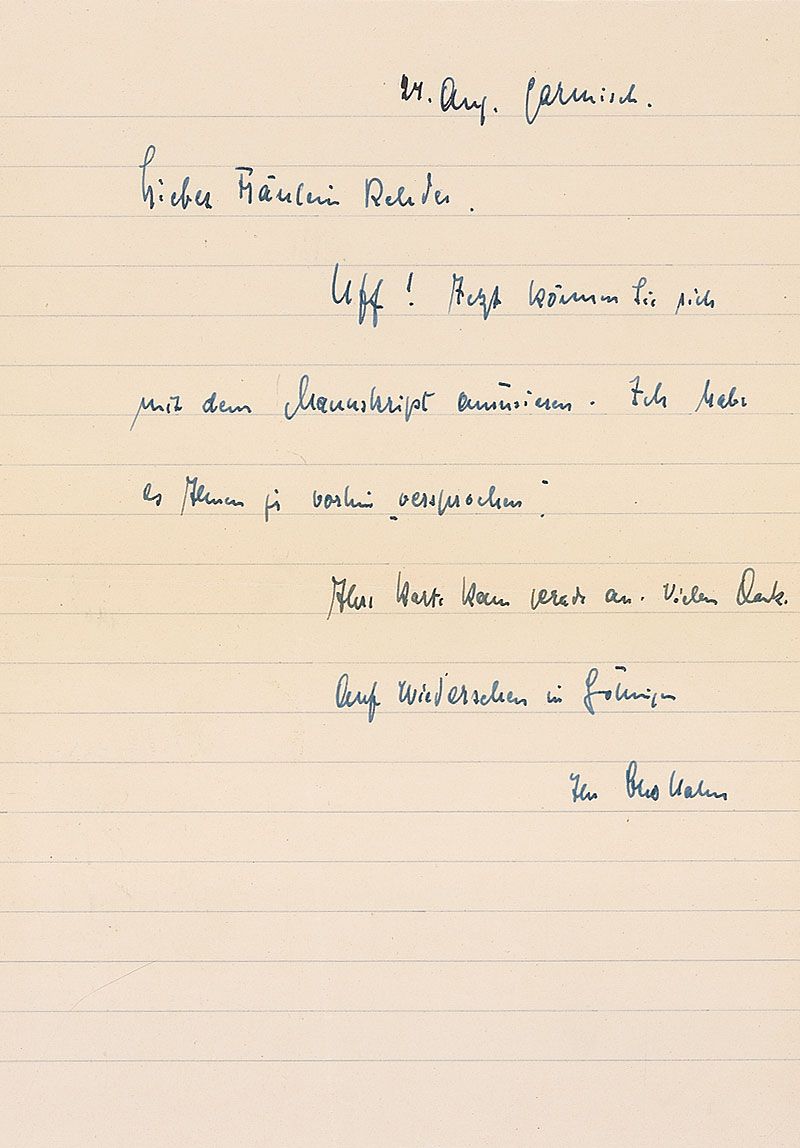 24. Aug. Garmisch.
Liebes Fräulein Rehder.
Uff! Jetzt können Sie sich
mit dem Manuskript amüsieren. Ich habe
es Ihnen ja vorhin „versprochen".
Ihre Karte kam gerade an. Vielen Dank.
Auf Wiedersehen in Göttingen
Ihr Otto Hahn